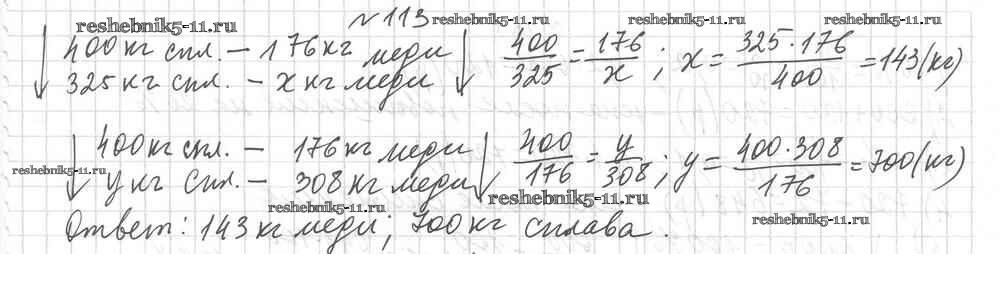 № 113
reshebnik5-11.ru reshebnik5-11.ru reshebnik5-11.ru reshebnik5-11.ru
400 кг спл. – 176 кг меди 400/325 = 176/x ; x = 325·176/400 = 143 (кг)
325 кг спл. – x кг меди
400 кг спл. – 176 кг меди 400/176 = y/308 ; y = 400·308/176 = 700 (кг)
reshebnik5-11.ru
y кг спл. – 308 кг меди
reshebnik5-11.ru reshebnik5-11.ru reshebnik5-11.ru
Ответ: 143 кг меди; 700 кг сплава.